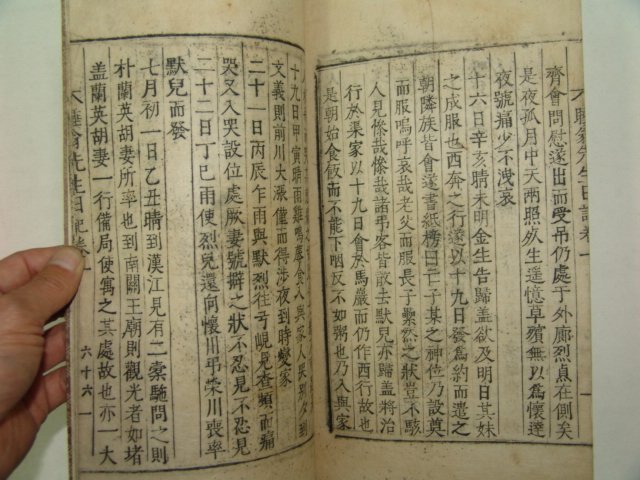 齊會問慰遂出而受弔仍處于外廊烈点在側矣
是夜孤月中天兩照
生遥憶草殯無以為懷達
夜號痛少不洩哀
十六日辛亥晴未明金生告歸盖欲及明日其妹
之成服也西奔之行遂以十九日發為約而遣之
朝隣族皆會遂書紙榜曰亡子某之神位乃設奠
而服嗚呼哀哉老父而服長子
然之狀豈不駭
人見慘哉慘哉諸弔客皆散去默兒亦歸盖將治
行於渠家以十九日會於馬
而仍作西行故也
是朝始食飯而不能下咽反不如粥也乃入與家
十九日甲寅晴雨雞鳴蓐食入與家人哭別
到
文義則前川大漲僅而得涉夜到時燮家
二十一日丙辰乍雨與默烈往弓峴見查頻而痛
哭又入哭設位處厥妻號擗之狀不忍見不忍見
二十二日丁巳雨使烈兒還向懷川弔榮川喪率
默兒而發
七月初一日乙丑晴到漢江見有二橐駞問之則
朴蘭英胡妻所率也到南關王廟則觀光者如堵
盖蘭英胡妻一行備局使寓之其處故也亦一大
先生日記卷一
六十六
一